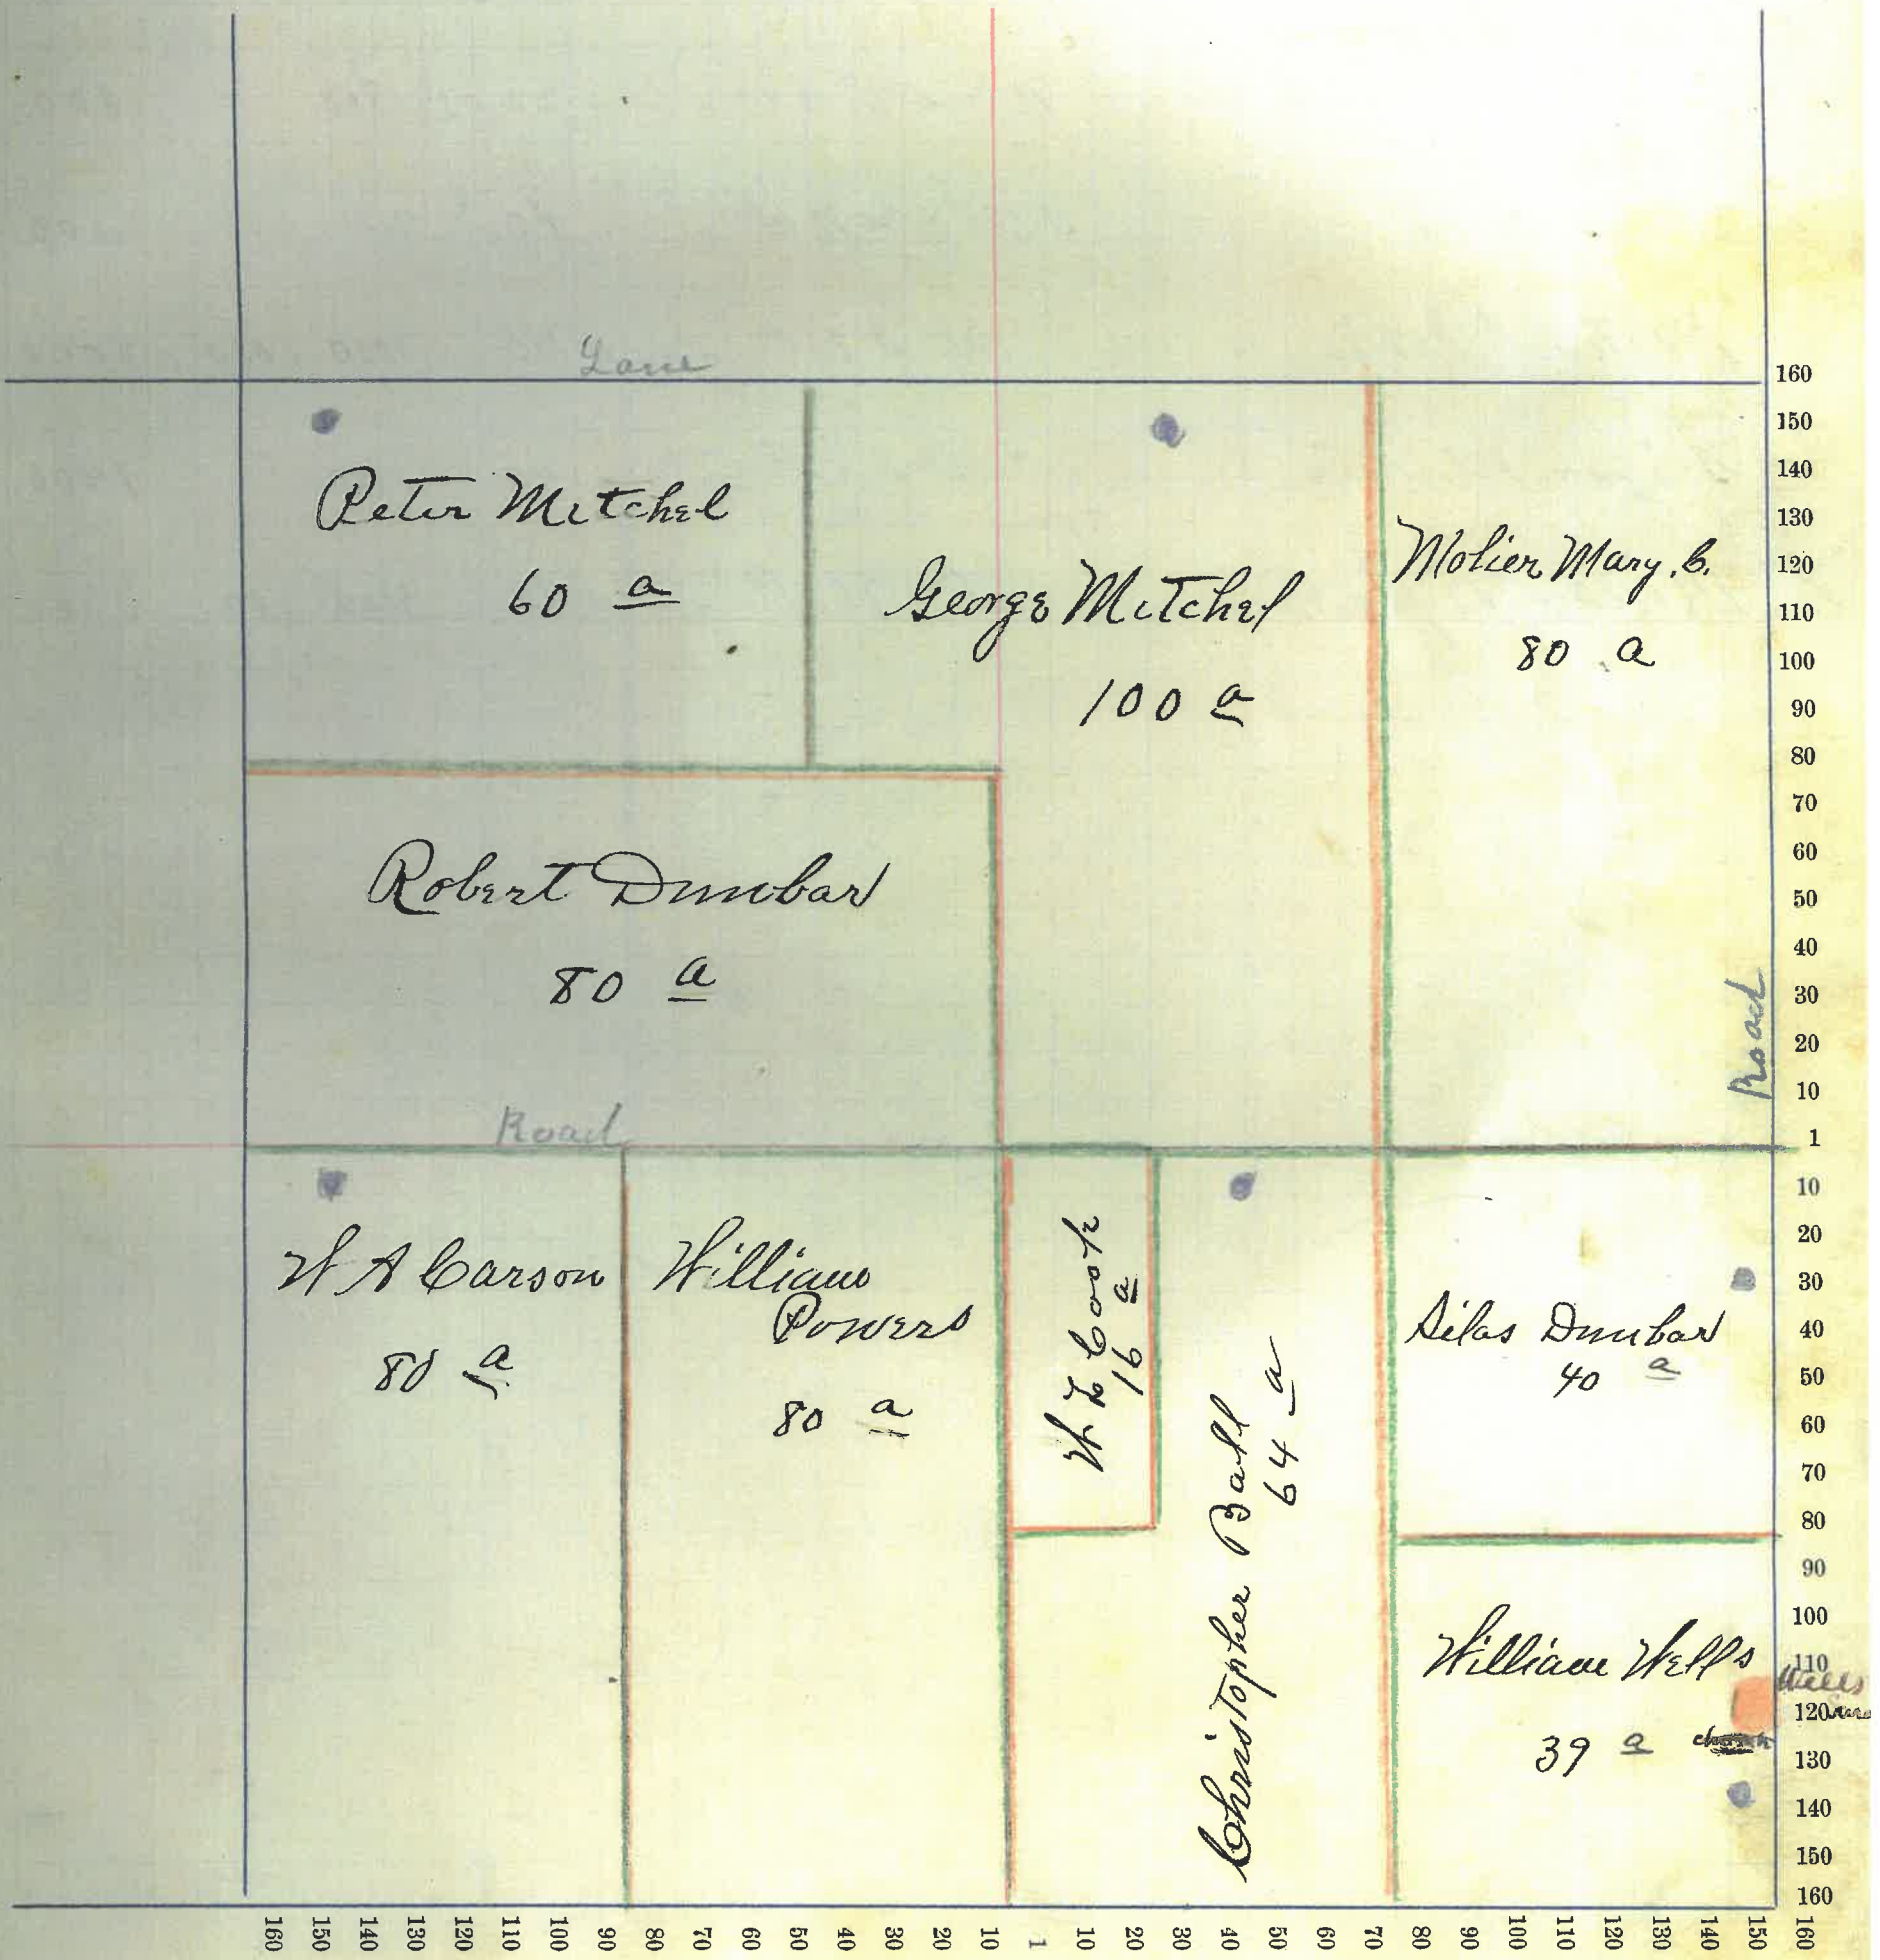 Lane
Peter Mitchel
60 a
George Mitchel
100 a
Molier Mary. C.
80 a
Robert Dunbar
80 a
Road
Road
W A Carson
80 a
William
Powers
80 a
Cook
16 a
Christopher Ball
64 a
Silas Dunbar
40 a
William Wells
39 a
Wells
160
150
140
130
120
110
100
90
80
70
60
50
40
30
20
10
1
10
20
30
40
50
60
70
80
90
100
110
120
130
140
150
160
160 150 140 130 120 110 100 90 80 70 60 50 40 30 20 10 1 10 20 30 40 50 60 70 80 90 100 110 120 130 140 150 160